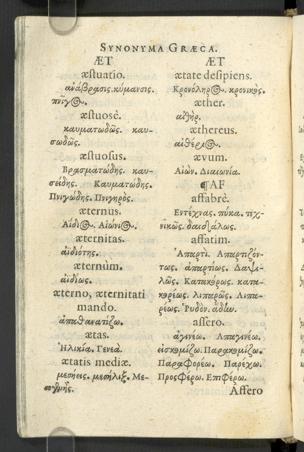 SYNONYMA GRÆCA.
ÆT
æstuatio.
ἀνάβρασις. κύμανσις.
πνῖγος.
æstuosè.
καυματωδῶς. καυ-
σωδῶς.
æstuosus.
Βρασματώδης. καυ-
σώδης. Καυματώδης.
Πνιγώδης. Πνιγηρός.
æternus.
Ἀΐδιος. Αἰώνιος.
æternitas.
ἀιδιότης.
æternùm.
ἀιδίως.
æterno, æternitati
mando.
ἀπαθανατίζω.
ætas.
Ἡλικία. Γενεά.
ætatis mediæ.
μεσῆλιξ. Με-
ÆT
ætate desipiens.
Κρονόληρος. κρονικὸς.
æther.
αἰθὴρ.
æthereus.
αἰθέριος.
ævum.
Αἰών. Διαιωνία.
¶AF
affabrè.
Εντέχνως. πύκα. τεχ-
νικῶς. δαιδάλως.
affatim.
Ἀπαρτὶ. Ἀπαρτιζόν-
τως. ἀπαρτίως. Δαψι-
λῶς. Κατακόρως. κατα-
κορέως. λιπαρῶς. Λιπα-
ρέως. Ρυδόν. ἅδην.
affero.
ἀγινέω. Ἀπαγινέω.
εἰσκομίζω. Παρακομίζω.
Παραφορέω. Παρέχω.
Προσφέρω. Επιφέρω.
Affero